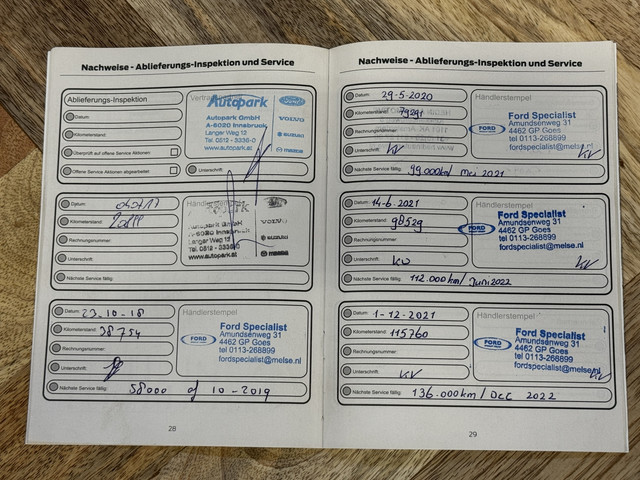 Nachweise - Ablieferungs-Inspektion und Service
Ablieferungs-Inspektion
Datum:
Kilometerstand:
Überprüft auf offene Service Aktionen:
Offene Service Aktionen abgearbeitet:
Autopark
Autopark GmbH
A-6020 Innsbruck
Langer Weg 12
Tel. 0512 - 3336-0
www.autopark.at
Ford
VOLVO
SUZUKI
mazda
Unterschrift:
Datum:
Kilometerstand:
Rechnungsnummer:
Unterschrift:
Nächste Service fällig:
Autopark GmbH
A-6020 Innsbruck
Langer Weg 12
Tel. 0512 - 3336-0
www.autopark.at
VOLVO
SUZUKI
mazda
Datum: 23-10-18
Kilometerstand: 38754
Rechnungsnummer:
Unterschrift:
Händlerstempel
FORD
Ford Specialist
Amundsenweg 31
4462 GP Goes
tel 0113-268899
fordspecialist@melse.nl
Nächste Service fällig: 58000 of 10-2019
28
Nachweise - Ablieferungs-Inspektion und Service
Datum: 29-5-2020
Kilometerstand:
Rechnungsnummer:
Unterschrift: KV
Händlerstempel
FORD
Ford Specialist
Amundsenweg 31
4462 GP Goes
tel 0113-268899
fordspecialist@melse.nl
KV
Nächste Service fällig: 99.000km/ Mei 2021
Datum: 14-6-2021
Kilometerstand: 98529
Rechnungsnummer:
Unterschrift: KV
Händlerstempel
FORD
Ford Specialist
Amundsenweg 31
4462 GP Goes
tel 0113-268899
fordspecialist@melse.nl
KV
Nächste Service fällig: 112.000km/ Juni 2022
Datum: 1-12-2021
Kilometerstand: 115760
Rechnungsnummer:
Unterschrift: KV
Händlerstempel
FORD
Ford Specialist
Amundsenweg 31
4462 GP Goes
tel 0113-268899
fordspecialist@melse.nl
KV
Nächste Service fällig: 136.000km/ Dec 2022
29